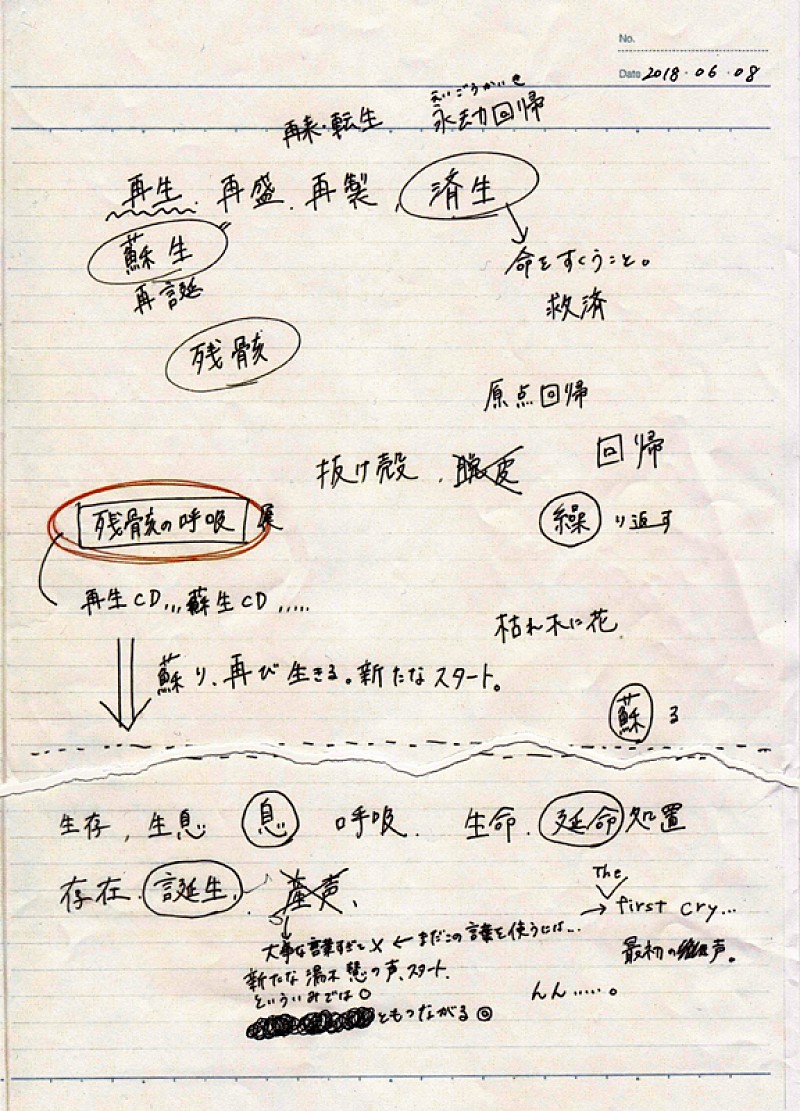 No.
Date 2018・06・08
えいごうかいき
再来・転生 永劫回帰
再生、再盛、再製、済生
蘇生
命をすくうこと。
再誕
救済
残骸
原点回帰
抜け殻、脱皮
回帰
残骸の呼吸 展
繰り返す
再生CD...蘇生CD.....
枯れ木に花
蘇り、再び生きる。新たなスタート。
蘇る
生存、生息 息 呼吸. 生命、延命処置
存在、誕生、産声、
The
→ first cry...
大事な言葉すぎて× ← まだこの言葉を使うには...
最初の 声。
新たな湯木慧の声、スタート.
といういみでは○
んん.....。
ともつながる◎